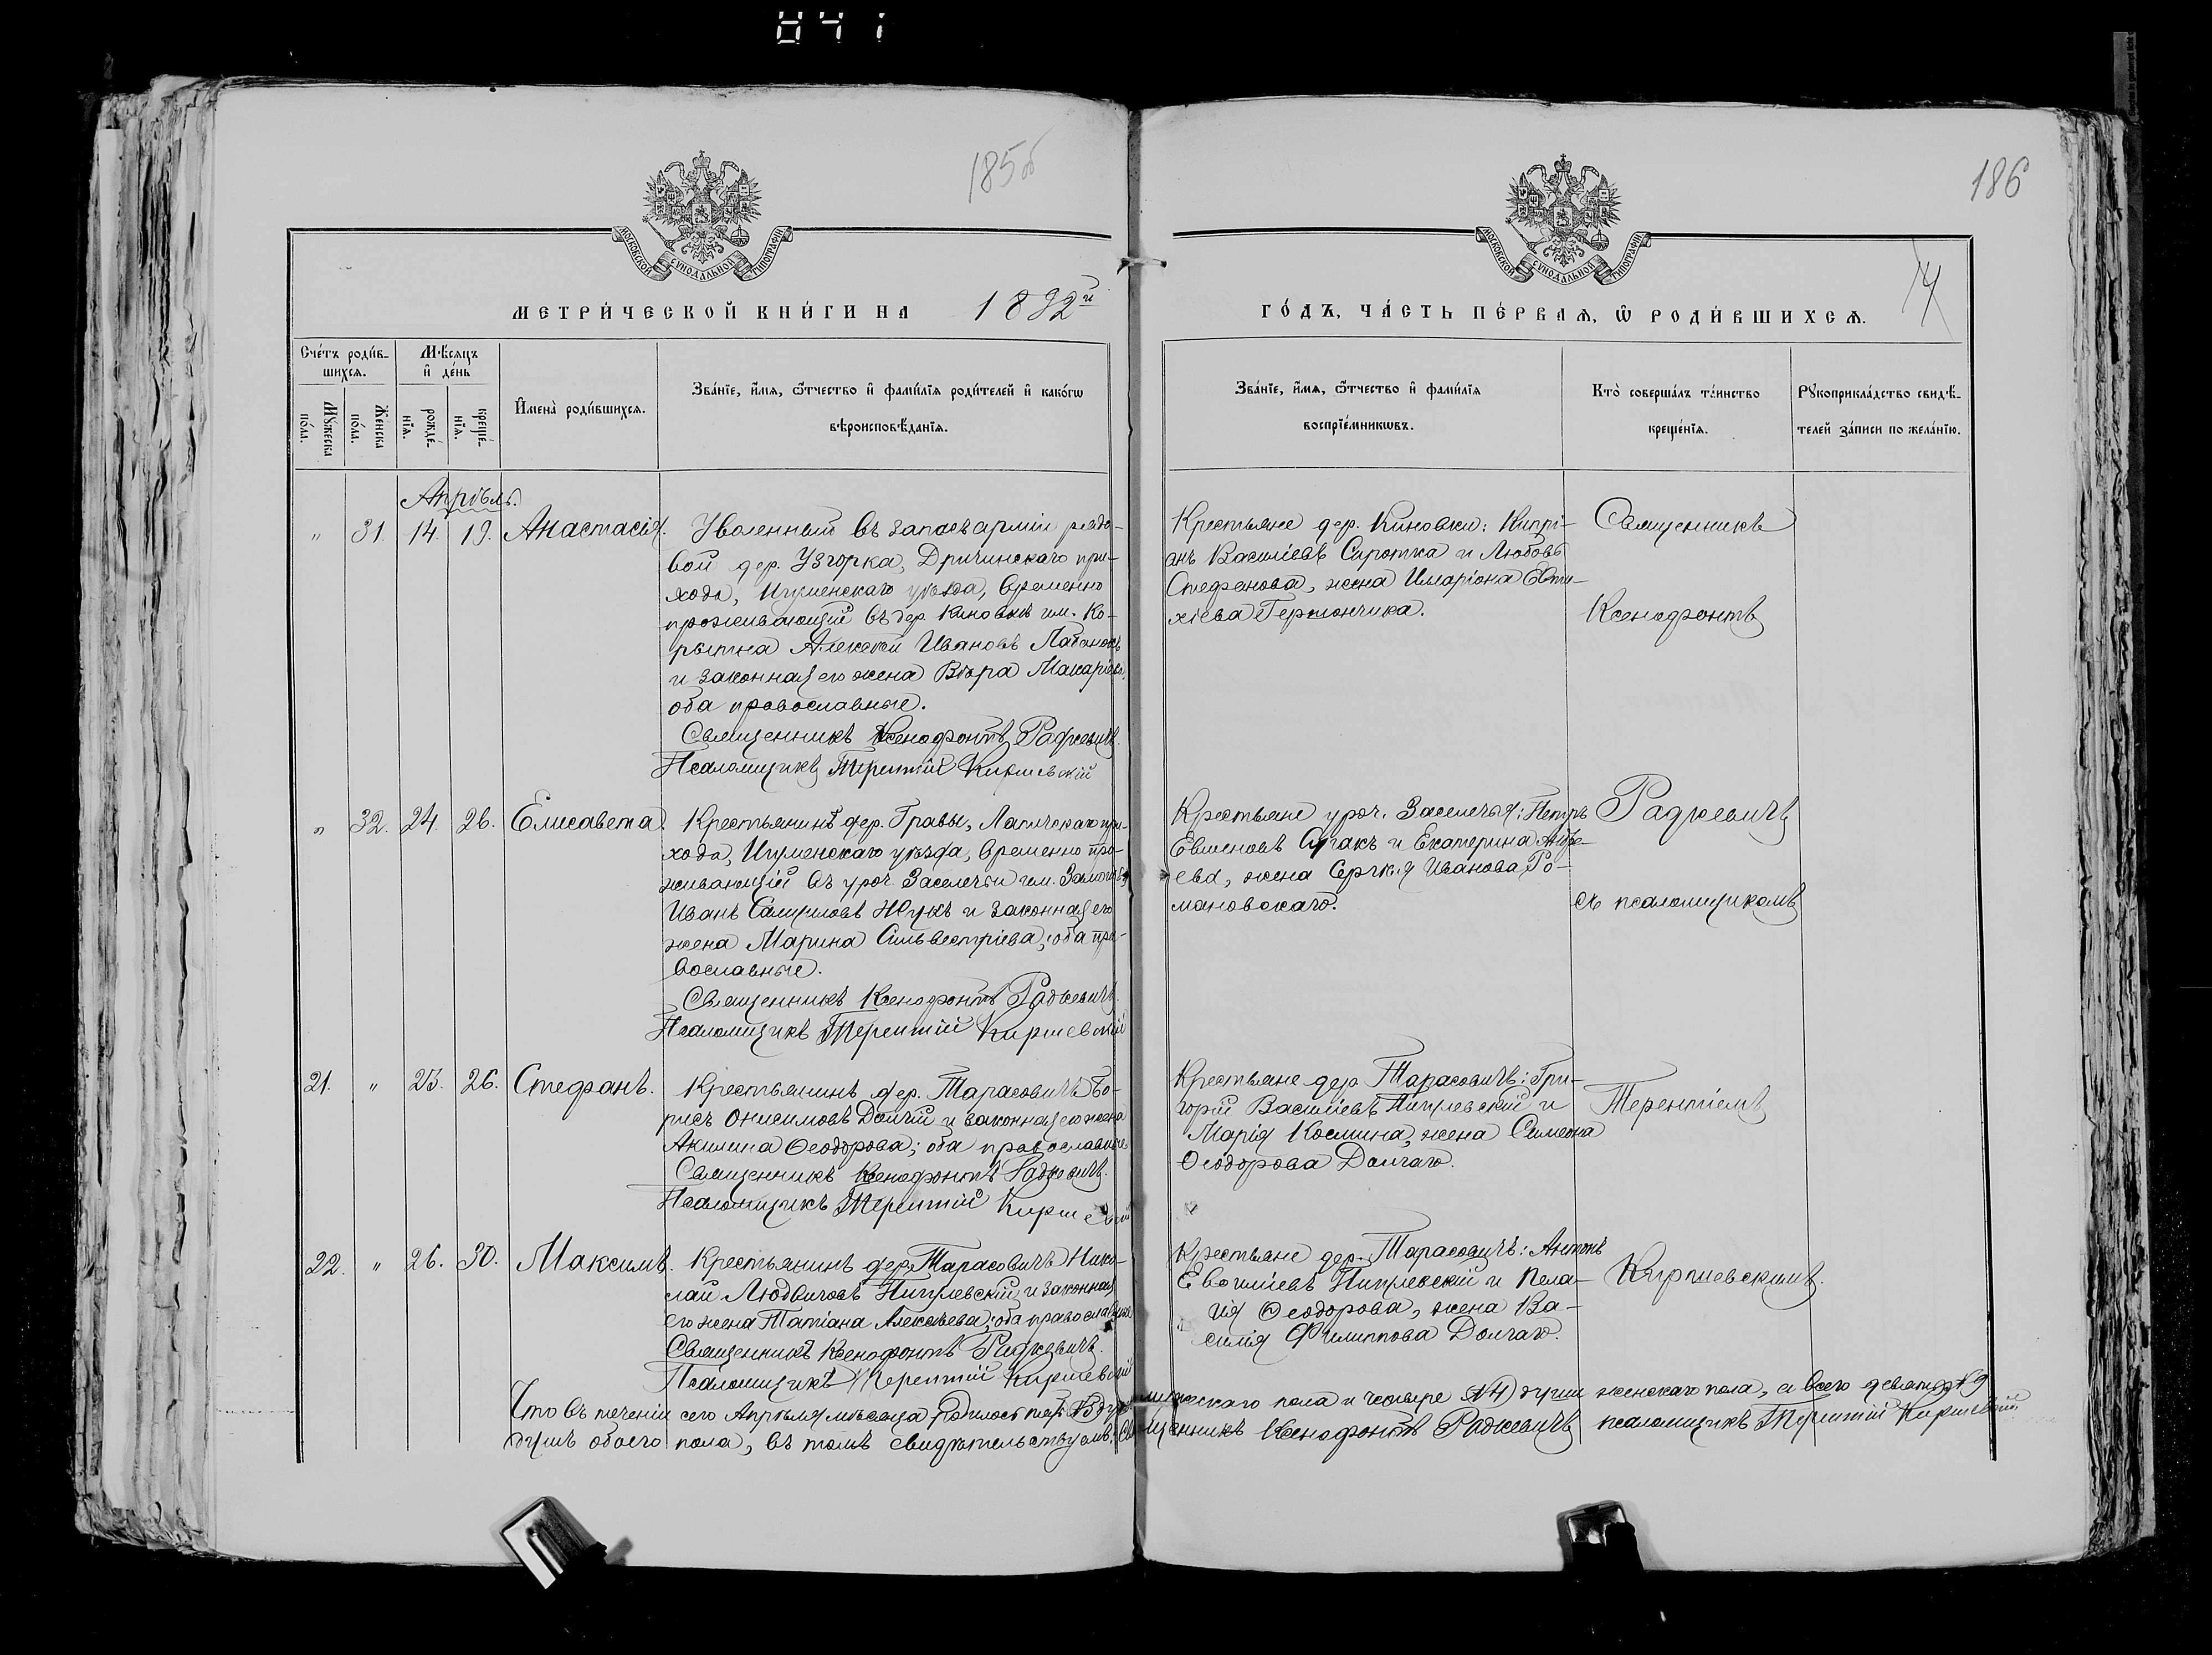 041
185об
186
МОСКОВСКОЙ СѴНОДАЛЬНОЙ ТИПОГРАФІИ
МОСКОВСКОЙ СѴНОДАЛЬНОЙ ТИПОГРАФІИ
МЕТРИ́ЧЕСКОЙ КНИ́ГИ НА 1892й
ГО́ДЪ, ЧА́СТЬ ПЕ́РВАѦ, Ѡ РОДИ́ВШИХСѦ.
Сче́тъ роди́в-
шихсѧ.
Мꙋжеска
по́ла.
Женска
по́ла.
Мѣ́сѧцъ
и҆ де́нь
рожде́-
нїѧ.
креще́-
нїѧ.
И҆мена̀ роди́вшихсѧ.
Зва́нїе, и҆́мѧ, ѻ҆́тчество и҆ фами́лїѧ роди́телей и҆ како́гѡ
вѣроисповѣ́данїѧ.
Зва́нїе, и҆́мѧ, ѻ҆́тчество и҆ фами́лїѧ
воспрїе́мникѡвъ.
Кто̀ соверша́лъ та́инство
креще́нїѧ.
Рꙋкоприкла́дство свидѣ́-
телей за́писи по жела́нїю.
Апрѣль.
" 31. 14. 19. Анастасія.
Уволенный въ запасъ арміи рядо-
вой дер. Узгорка, Дричинскаго при-
хода, Игуменскаго уѣзда, временно
проживающій въ дер. Киновкѣ им. Ко-
рытна Алексѣй Ивановъ
и законная его жена Вѣра Макаріева,
оба православные.
Священникъ Ксенофонтъ Радкевичъ.
Псаломщикъ Терентій Киркевскій
Крестьяне дер. Киновки: Кипрі-
анъ Василіевъ Сиротка и Любовь
Стефанова, жена Иларіона Евти-
хіева Гермончика.
Священникъ
Ксенофонтъ
" 32. 24. 26. Елисавета.
Крестьянинъ дер. Гравы, Лапичскаго при-
хода, Игуменскаго уѣзда, временно про-
живающій въ уроч. Заселечьи им.
Иванъ Самуиловъ Жукъ и законная его
жена Марина Сильвестріева; оба пра-
вославные.
Священникъ Ксенофонтъ Радкевичъ.
Псаломщикъ Терентій Киркевскій
Крестьяне уроч. Заселечья: Петръ
Евменовъ и Екатерина Андре-
ева, жена Сергія Иванова Ро-
мановскаго.
Радкевичъ
съ псаломщикомъ
21. " 23. 26. Стефанъ.
Крестьянинъ дер. Тарасовичъ Бо-
рисъ Онисимовъ Долгій и законная его жена
Акилина Ѳеодорова; оба православные
Священникъ Ксенофонтъ Радкевичъ.
Псаломщикъ Терентій Киркевскій
Крестьяне дер. Тарасовичъ: Гри-
горій Василіевъ Пигулевскій и
Марія Космина, жена Симеона
Ѳеодорова Долгаго.
Терентіемъ
22. " 26. 30. Максимъ.
Крестьянинъ дер. Тарасовичъ Нико-
лай Людвиговъ Пигулевскій и законная
его жена Татіана Алексѣева; оба православные
Священникъ Ксенофонтъ Радкевичъ.
Псаломщикъ Терентій Киркевскій
Крестьяне дер. Тарасовичъ: Антонъ
Пигулевскій и Пела-
гія Ѳеодорова, жена Ва-
силія Филиппова Долгаго.
Киркевскимъ.
Что въ теченіи сего Апрѣля мѣсяца родилось пять (5) душъ мужескаго пола и четыре (4) души женскаго пола, а всего девять (9)
душъ обоего пола, въ томъ свидѣтельствуемъ: Священникъ Ксенофонтъ Радкевичъ псаломщикъ Терентій Киркевскій